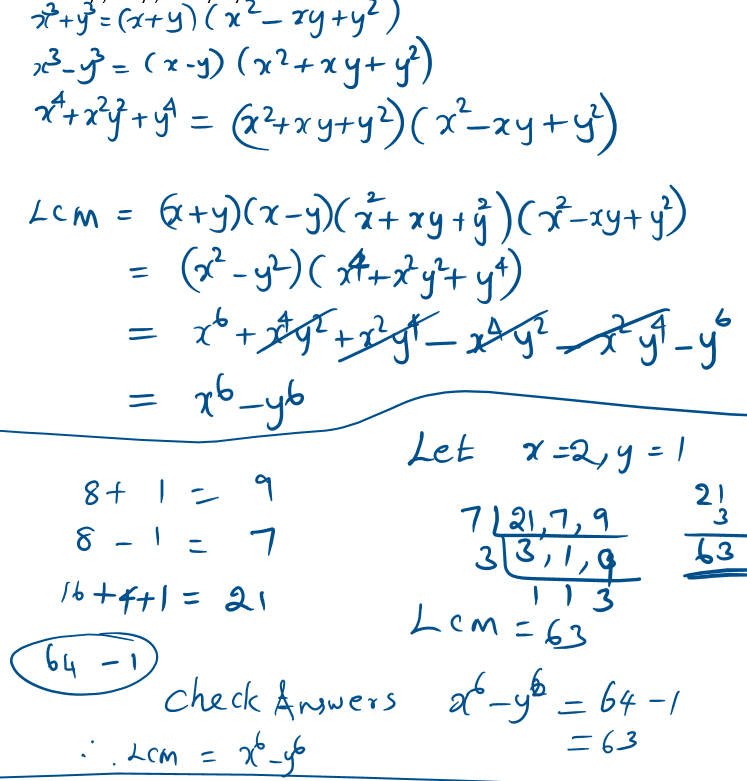 x³+y³=(x+y)(x²-xy+y²)
x³-y³=(x-y)(x²+xy+y²)
x⁴+x²y²+y⁴=(x²+xy+y²)(x²-xy+y²)
LCM = (x+y)(x-y)(x²+xy+y²)(x²-xy+y²)
= (x²-y²)(x⁴+x²y²+y⁴)
= x⁶+x⁴y²+x²y⁴-x⁴y²-x²y⁴-y⁶
= x⁶-y⁶
8+1=9
8-1=7
16+4+1=21
64-1
Let x=2, y=1
7|21,7,9
3|3,1,9
1 1 3
21
3
63
LCM = 63
Check Answers x⁶-y⁶ = 64-1
= 63
∴ LCM = x⁶-y⁶